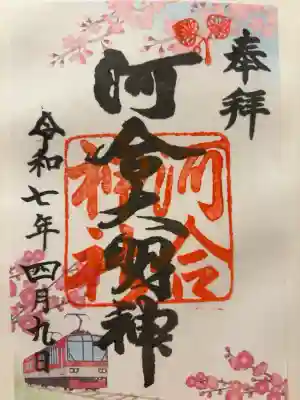 奉拝
河合大明神
河合
神社
令和七年四月九日